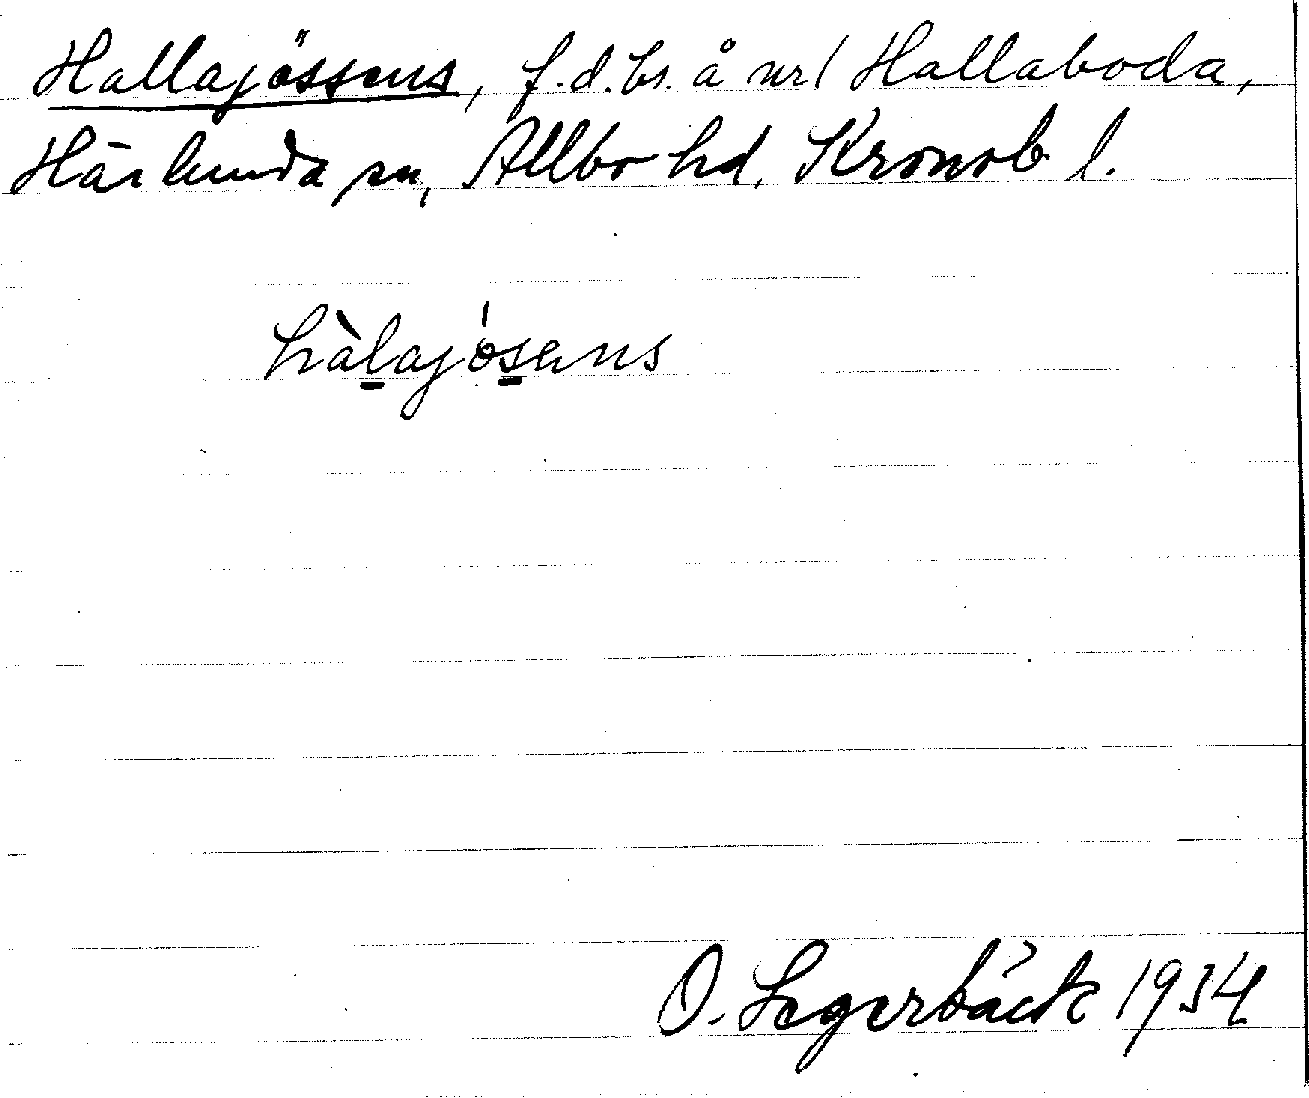 Hallajössens, f.d. bs. å nr 1 Hallaboda,
Härlunda sn, Allbo hd. Kronob l.
hàlajósens
O. Legerbäck 1934